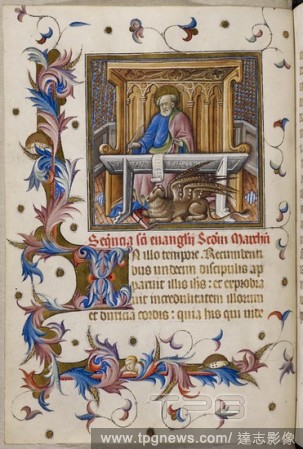 Sequẽcia sc̃i euangelij Scďm Marchũ
IN illo tempore. Recumbenti
bus undecim discipulis ap
paruit illis ihs: et exprobra
uit incredulitatem illorum
et duricia cordis: quia his qui uide
TPG
www.tpgnews.com/達志影像